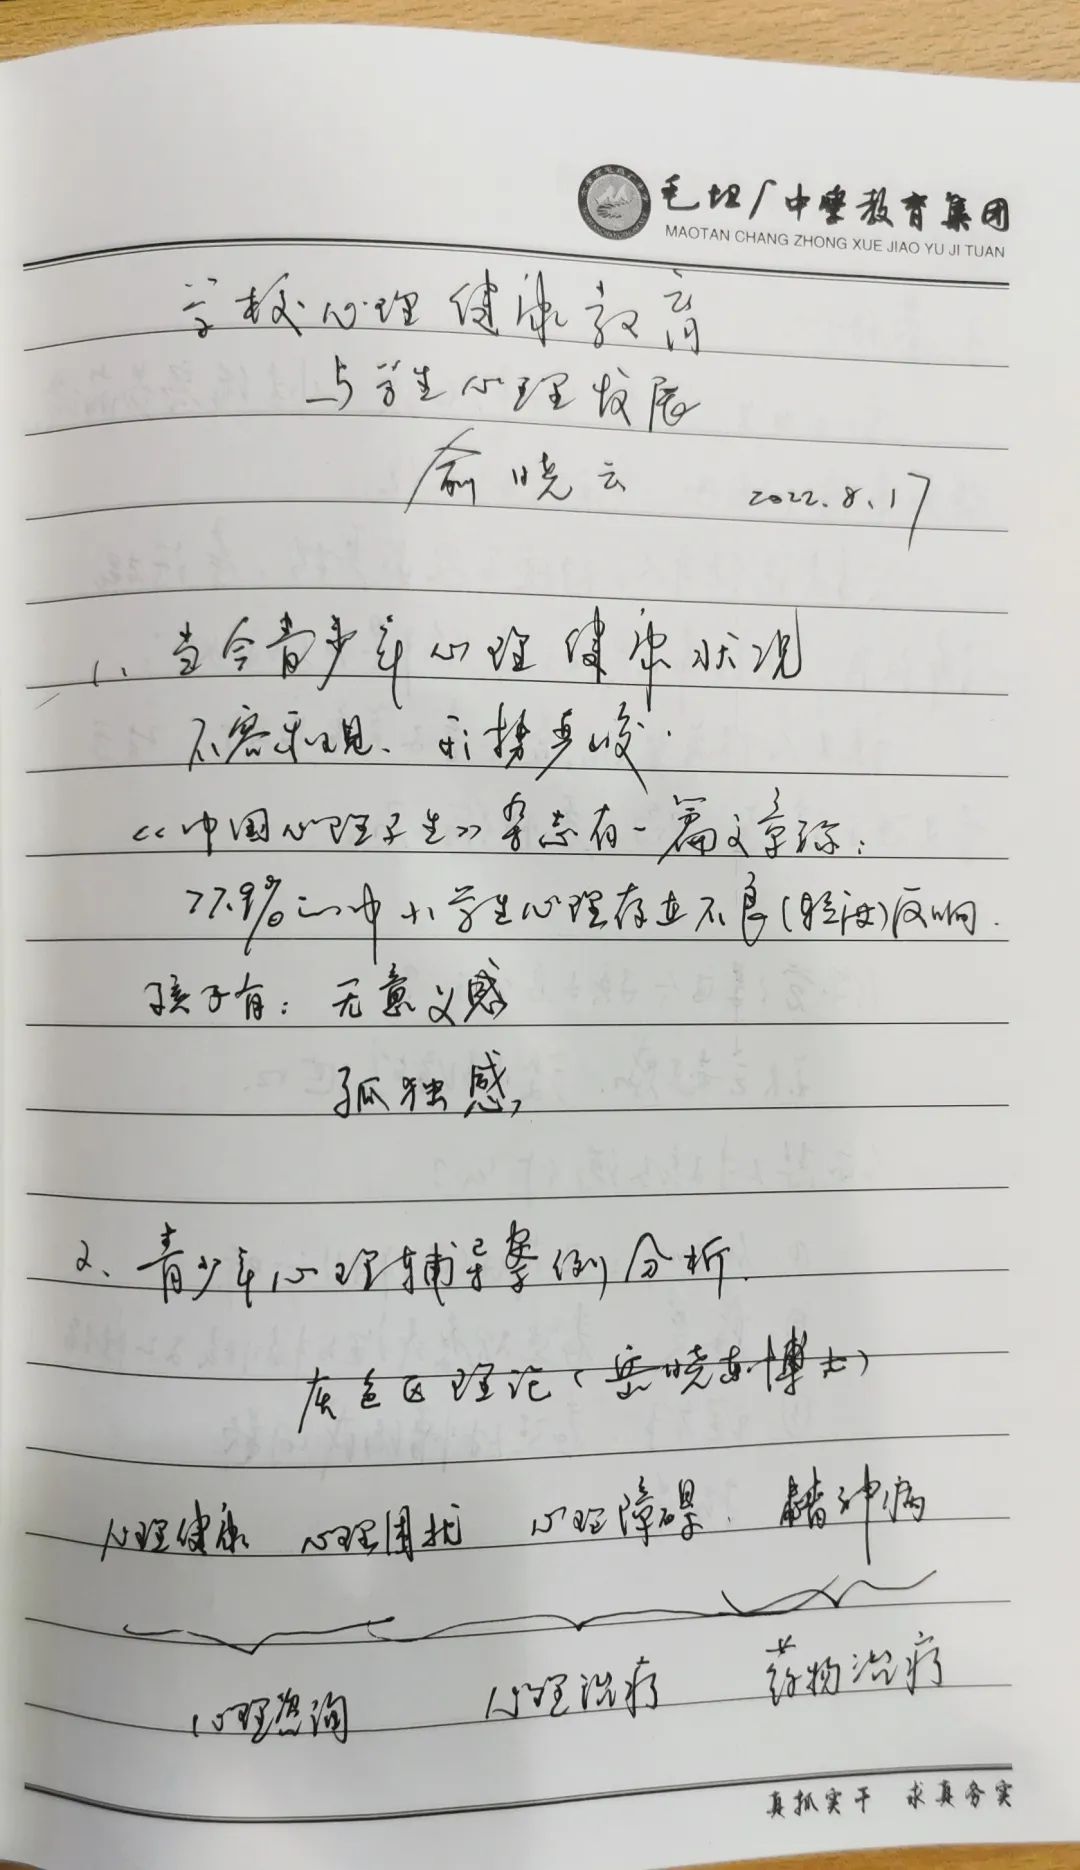 毛坦厂中学教育集团
MAOTAN CHANG ZHONG XUE JIAO YU JI TUAN
学校心理健康教育
与学生心理发展
俞晓云 2022.8.17
1、当今青少年心理健康状况
不容乐观、形势严峻.
《中国心理卫生》杂志有一篇文章称:
的中小学生心理存在不良(轻度)反响.
孩子有: 无意义感
孤独感,
2、青少年心理辅导案例分析.
灰色区理论(岳晓东博士)
心理健康 心理困扰 心理障碍. 精神病
心理咨询 心理治疗 药物治疗
真抓实干 求真务实